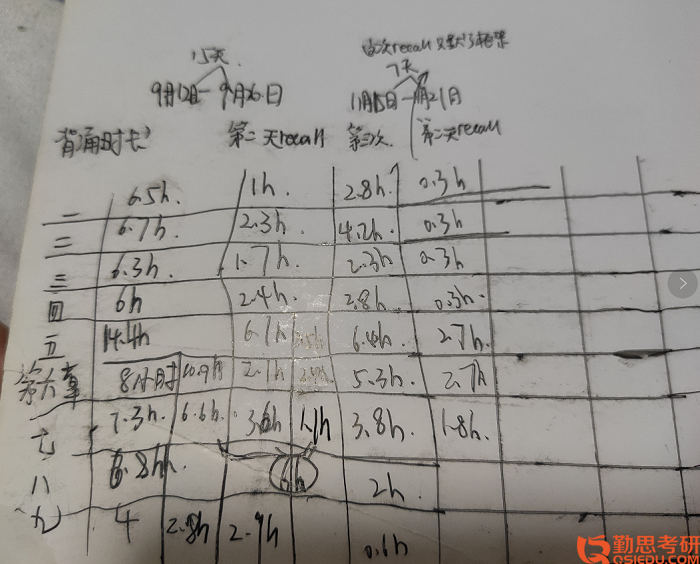 15天
这次recall只默了框架
7天
9月12日-9月26日
11月15日-11月21日
背诵时长
第二天recall
第三次
第二天recall
一 6.5h. 1h. 2.8h. 0.3h
二 6.7h. 2.3h. 4.2h. 0.3h
三 6.3h. 1.7h. 2.3h 0.3h
四 6h 2.4h. 2.8h 0.3h.
五 14.4h 6.4h. 2.7h
第六章 8小时 2.1h 5.3h 2.7h
七 7.3h. 6.6h. 3.6h 1.1h 3.8h. 1.8h.
八 6.8h. 6h 2h.
九 4 2.8h 2.9h 0.6h
勤思考研
QSIEDU.COM